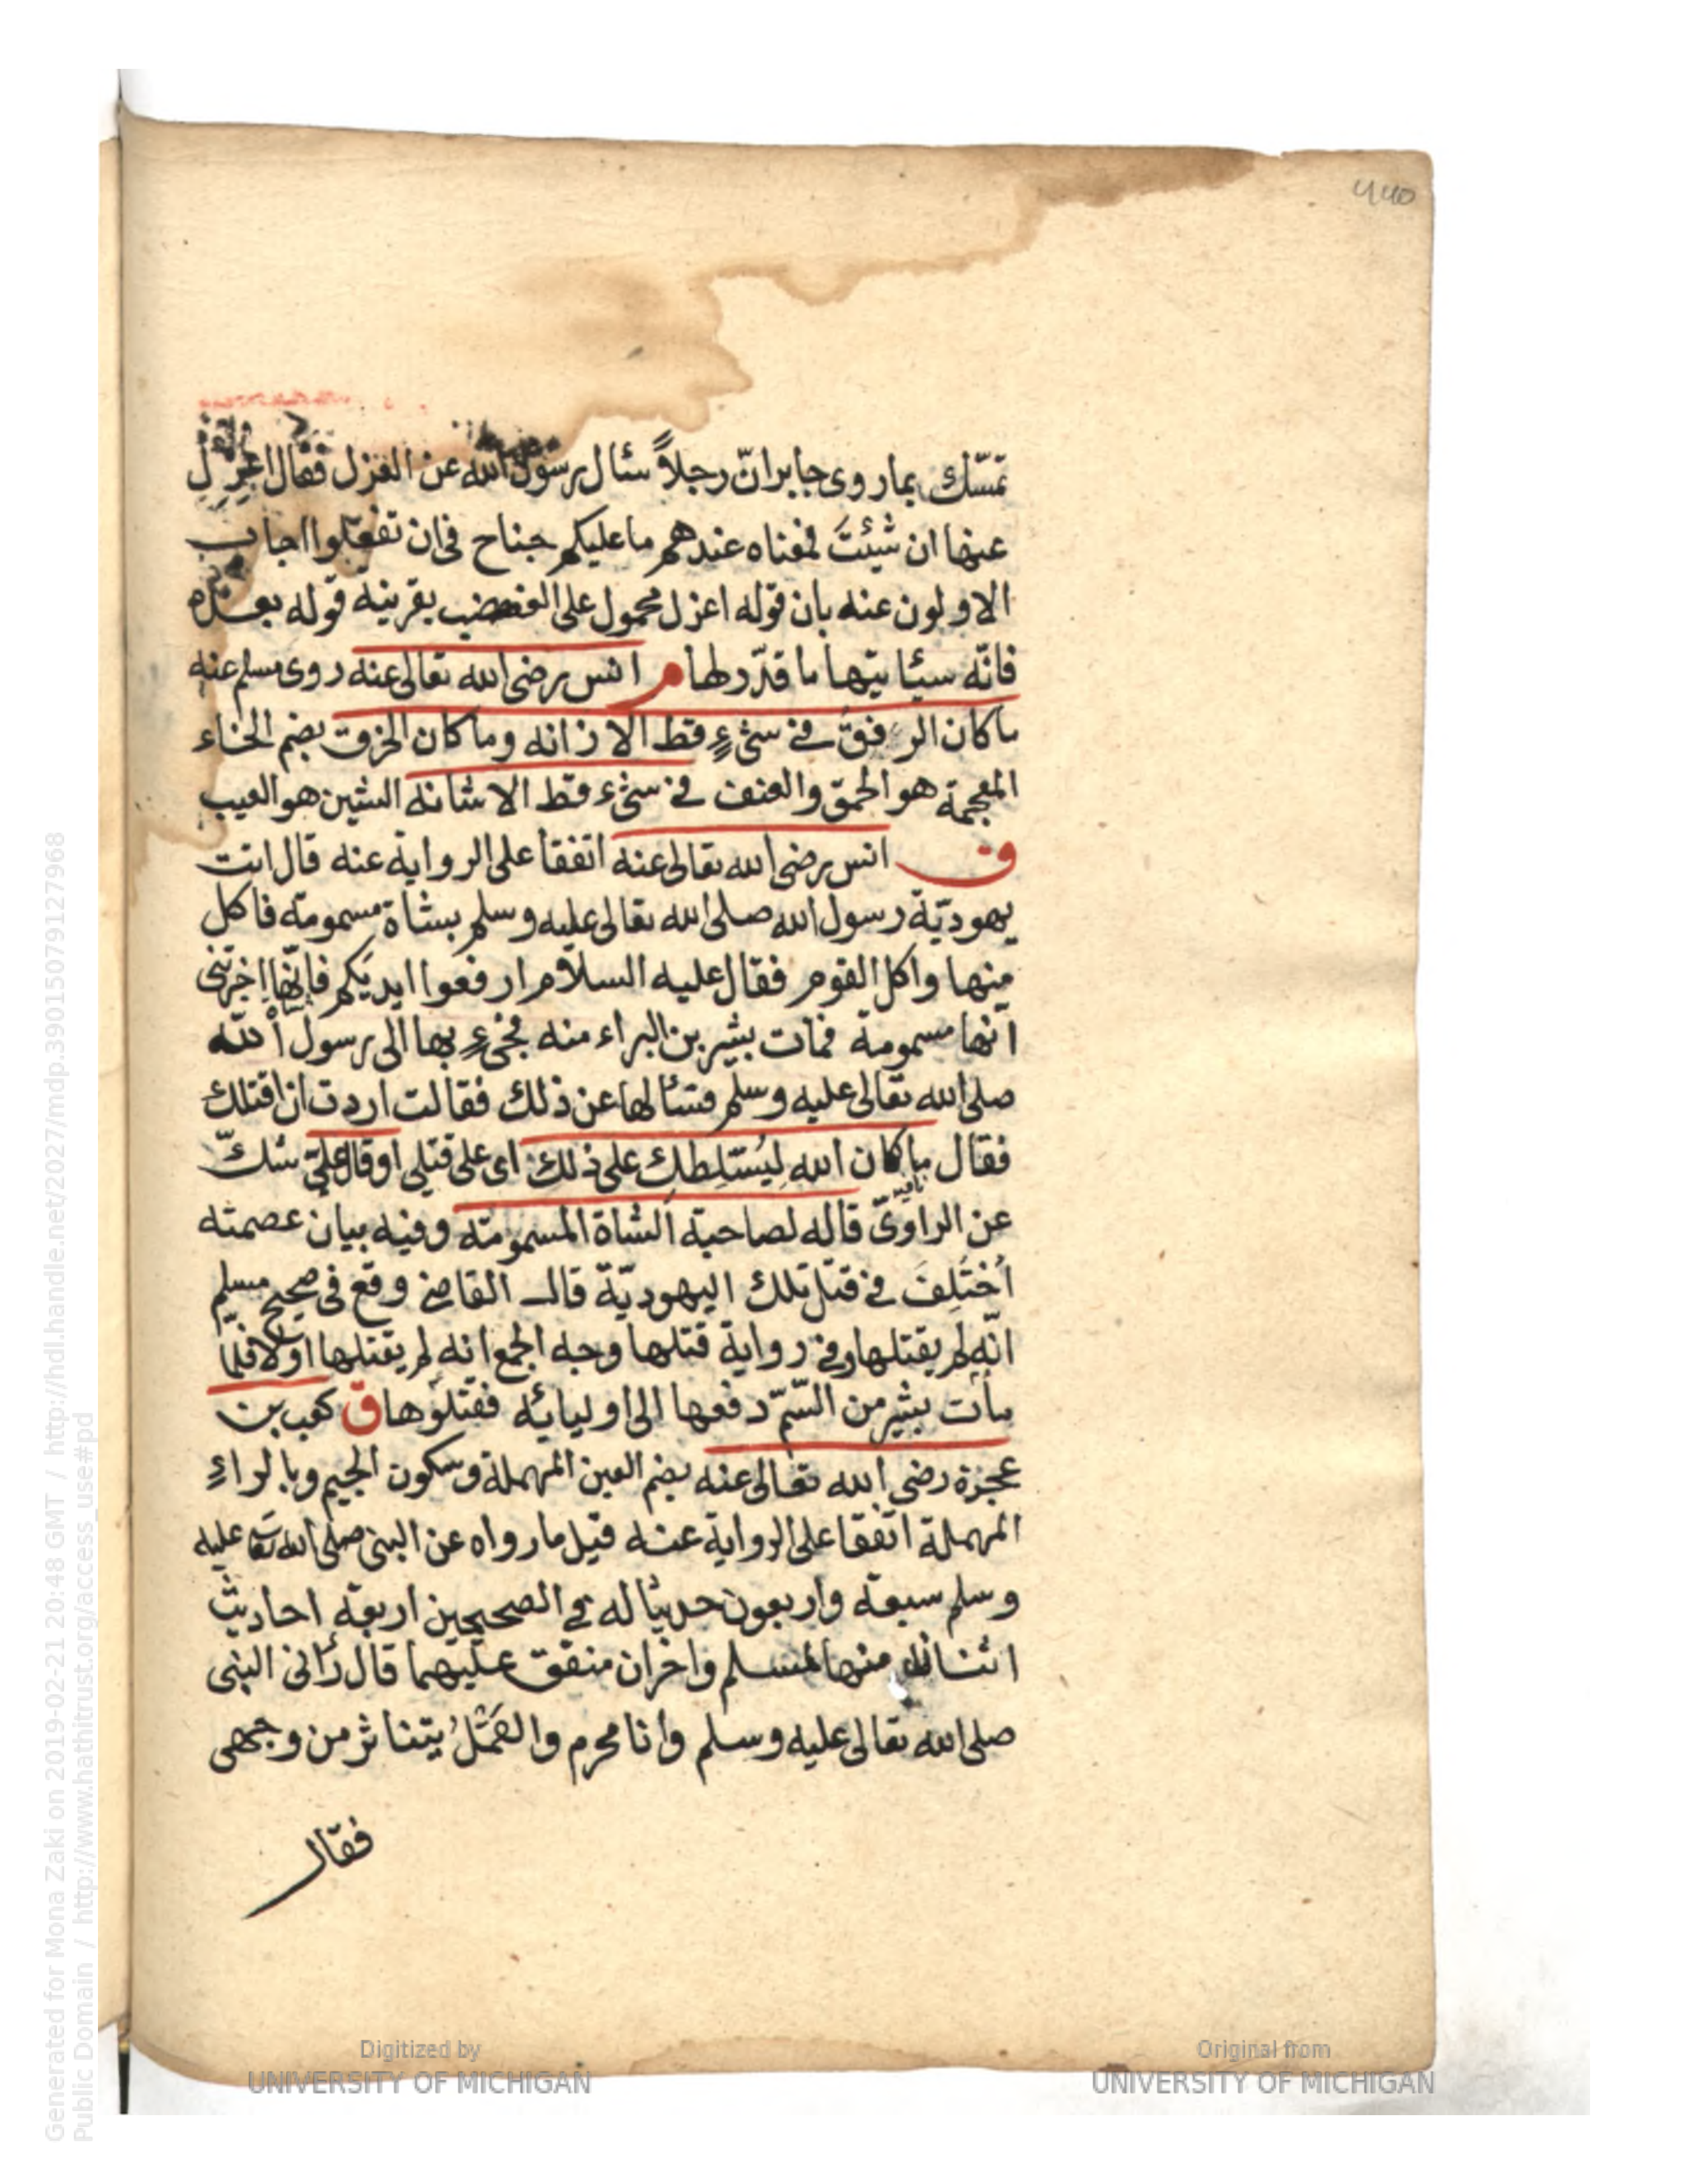 تمسّك بما روى جابر انّ رجلاً سئال رسول الله عن العزل فقال اعزل
عنها ان شيئتَ فمعناه عندهم ما عليكم جناح فى ان تفعلوا اجاب
الاولون عنه بان قوله اعزل محمول على الغضب بقرينة قوله بعده
فانّه سيئا تيها ما قدّر لها م انس رضى الله تعالى عنه روى مسلم عنه
ما كان الرفقُ فى شئٍ قط الا زانه وما كان الخرق بضم الخاء
المعجمة هو الحمق والعنف فى شئ قط الا شانه الشين هو العيب
ق انس رضى الله تعالى عنه اتفقا على الرواية عنه قال اتت
يهوديّة رسول الله صلى الله تعالى عليه وسلم بشاة مسمومة فاكل
منها واكل القوم فقال عليه السلام ارفعوا ايديكم فانّها اخبرتنى
انّها مسمومة فمات بشير بن البراء منه فجئ بها الى رسول الله
صلى الله تعالى عليه وسلم فسئا لها عن ذلك فقالت اردت ان اقتلك
فقال ما كان الله ليُسَلِطك على ذلك اى على قتلى او قال علىّ شكّ
عن الراوىّ قاله لصاحبة الشاة المسمومة وفيه بيان عصمته
اُختَلِفَ فى قتل تلك اليهوديّة قال القاضى وقع فى صحيح مسلم
انّه لم يقتلها وفى رواية قتلها وجه الجمع انه لم يقتلها اولا فلمّا
مات بشير من السّمّ دفعها الى اوليائه فقتلوها ق كعب بن
عجزة رضى الله تعالى عنه بضم العين المهملة وسكون الجيم وبالراءِ
المهملة اتفقا على الرواية عنه قيل ما رواه عن النبى صلى الله تعا عليه
وسلم سبعة واربعون حديثا له فى الصحيحين اربعة احاديث
اثنان منها لمسلم واخران متفق عليهما قال رآنى النبى
صلى الله تعالى عليه وسلم وانا محرم والقَمْلُ يتناثر من وجهى
فقال
Generated for Mona Zaki on 2019-02-21 20:48 GMT / http://hdl.handle.net/2027/mdp.39015079127968
Public Domain / http://www.hathitrust.org/access_use#pd
Digitized by
UNIVERSITY OF MICHIGAN
Original from
UNIVERSITY OF MICHIGAN